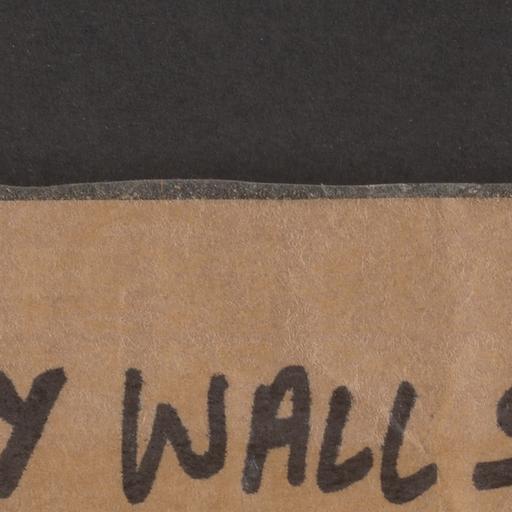 Y WALL S